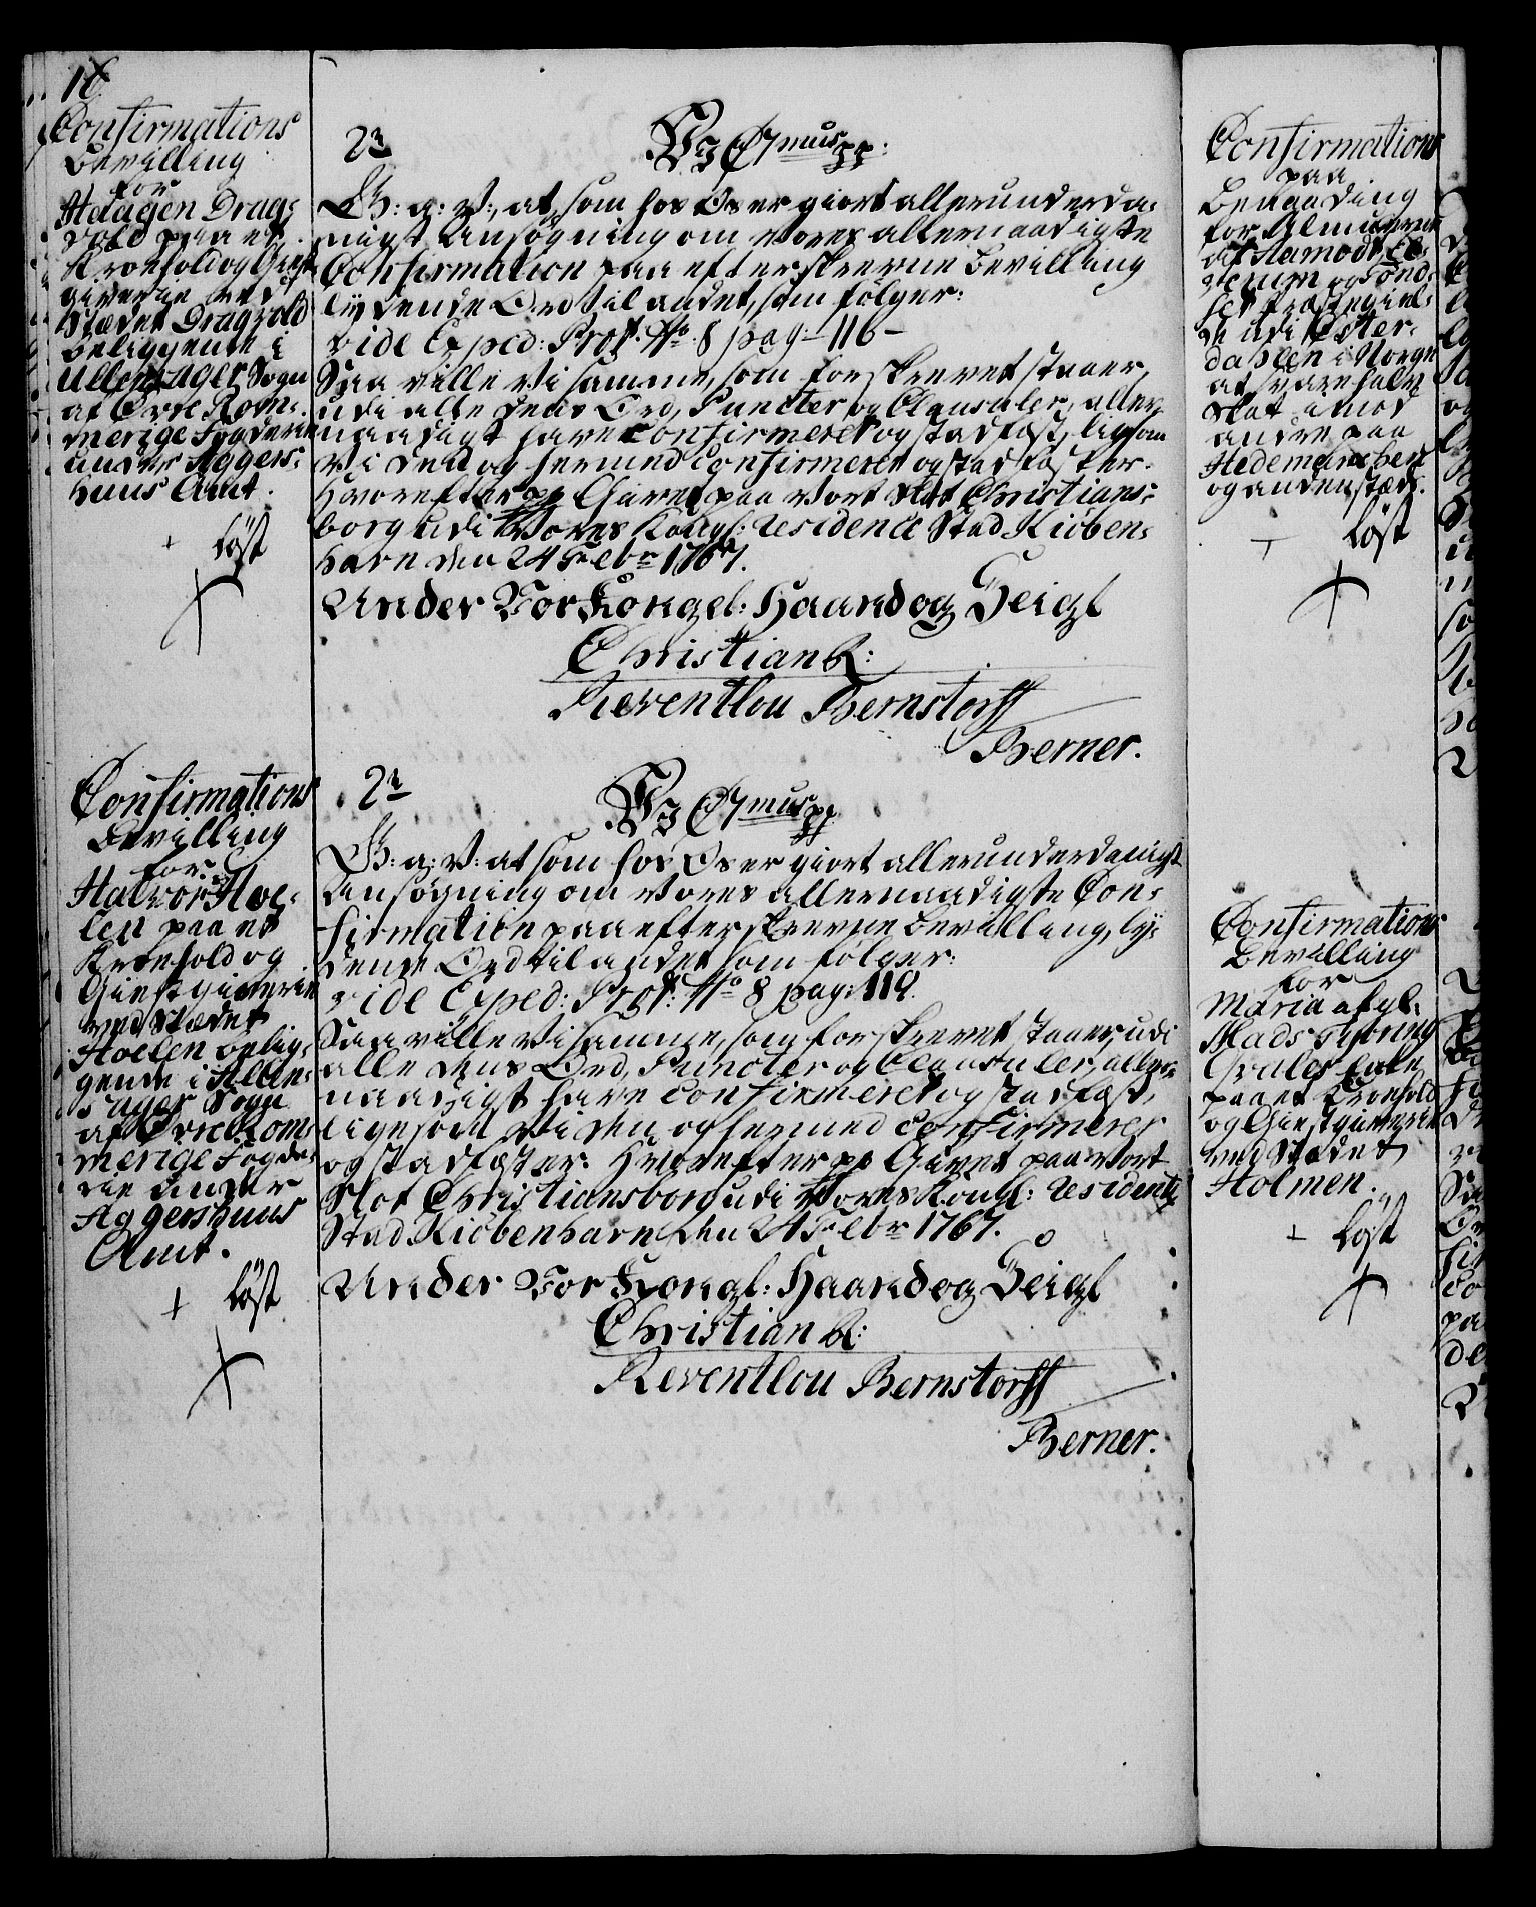 18
Confirmations
Bevilling
for
Haagen Drag-
vold paa et
Kroehold og Giest-
giverie ved
Stædet Dragvold
beliggende i
Ullensager Sogn
af Øvre Rom-
merige Fogderie
under Aggers-
huus Amt.
+ løst
2 rt
Vj Chr mus pp:
G: a: V:, at, som hos Os er giort allerunderda-
nigst Ansøgning om Vores allernaadigste
Confirmation paa efterskrevne Bevilling
lydende Ord til andet, som følger:
vide Exped: Prot: No. 8 pag: 116 -
Saa ville Vi samme, som forskrevet staaer,
udi alle dens Ord, Puncter og Clausuler, aller-
naadigst have confirmeret og stadfæst, ligesom
Vi den og hermed confirmerer og stadfæster.
Hvorefter pp Givet paa Vort Slot Christians-
borg udi Vores Kongl: Residence Stad Kiøben-
havn den 24 Febr 1767.
Under Vor Kongel: Haand og Seigl
Christian R:
Reventlou Bernstorff
Berner.
Confirmations
Bevilling
for
Halvor Hoe-
len paa et
Kroehold og
Giestgiverie
ved Stædet
Hoelen belig-
gende i Ullen-
sager Sogn
af Øvre Rom-
merige Fogde-
rie under
Aggershuus
Amt.
+ løst
2 rt
Vj Chr mus pp
G: a: V: at som hos Os er giort allerunderdanigst
Ansøgning om Vores allernaadigste Con-
firmation paa efterskrevne Bevilling, ly-
dende Ord til andet som følger:
vide Exped: Prot: No 8 pag: 119.
Saa ville Vi samme, som forskrevet staaer, udi
alle dens Ord, Puncter og Clausuler, aller-
naadigst have confirmeret og stadfæst,
ligesom Vi den og hermed confirmerer
og stadfæster. Hvorefter pp Givet paa Vort
Slot Christiansborg udi Vores Kongl: Residentz
Stad Kiøbenhavn den 24 Febr 1767.
Under Vor Kongl: Haand og Seigl
Christian R:
Reventlou Bernstorff
Berner.
Confirmations
paa
Benaading
for Almuerne
af Aamodt, El-
verum og Sønd-
ved Præstegiel-
de udi Øster-
dahlen i Norge
at svare halv
Skat imod
andre paa
Hedemarchen
og andenstæds.
+ løst
Confirmations
Bevilling
for
Maria afgl:
Mads
paa et Kroehold
og Giestgiverie
ved Stædet
Holmen.
+ løst